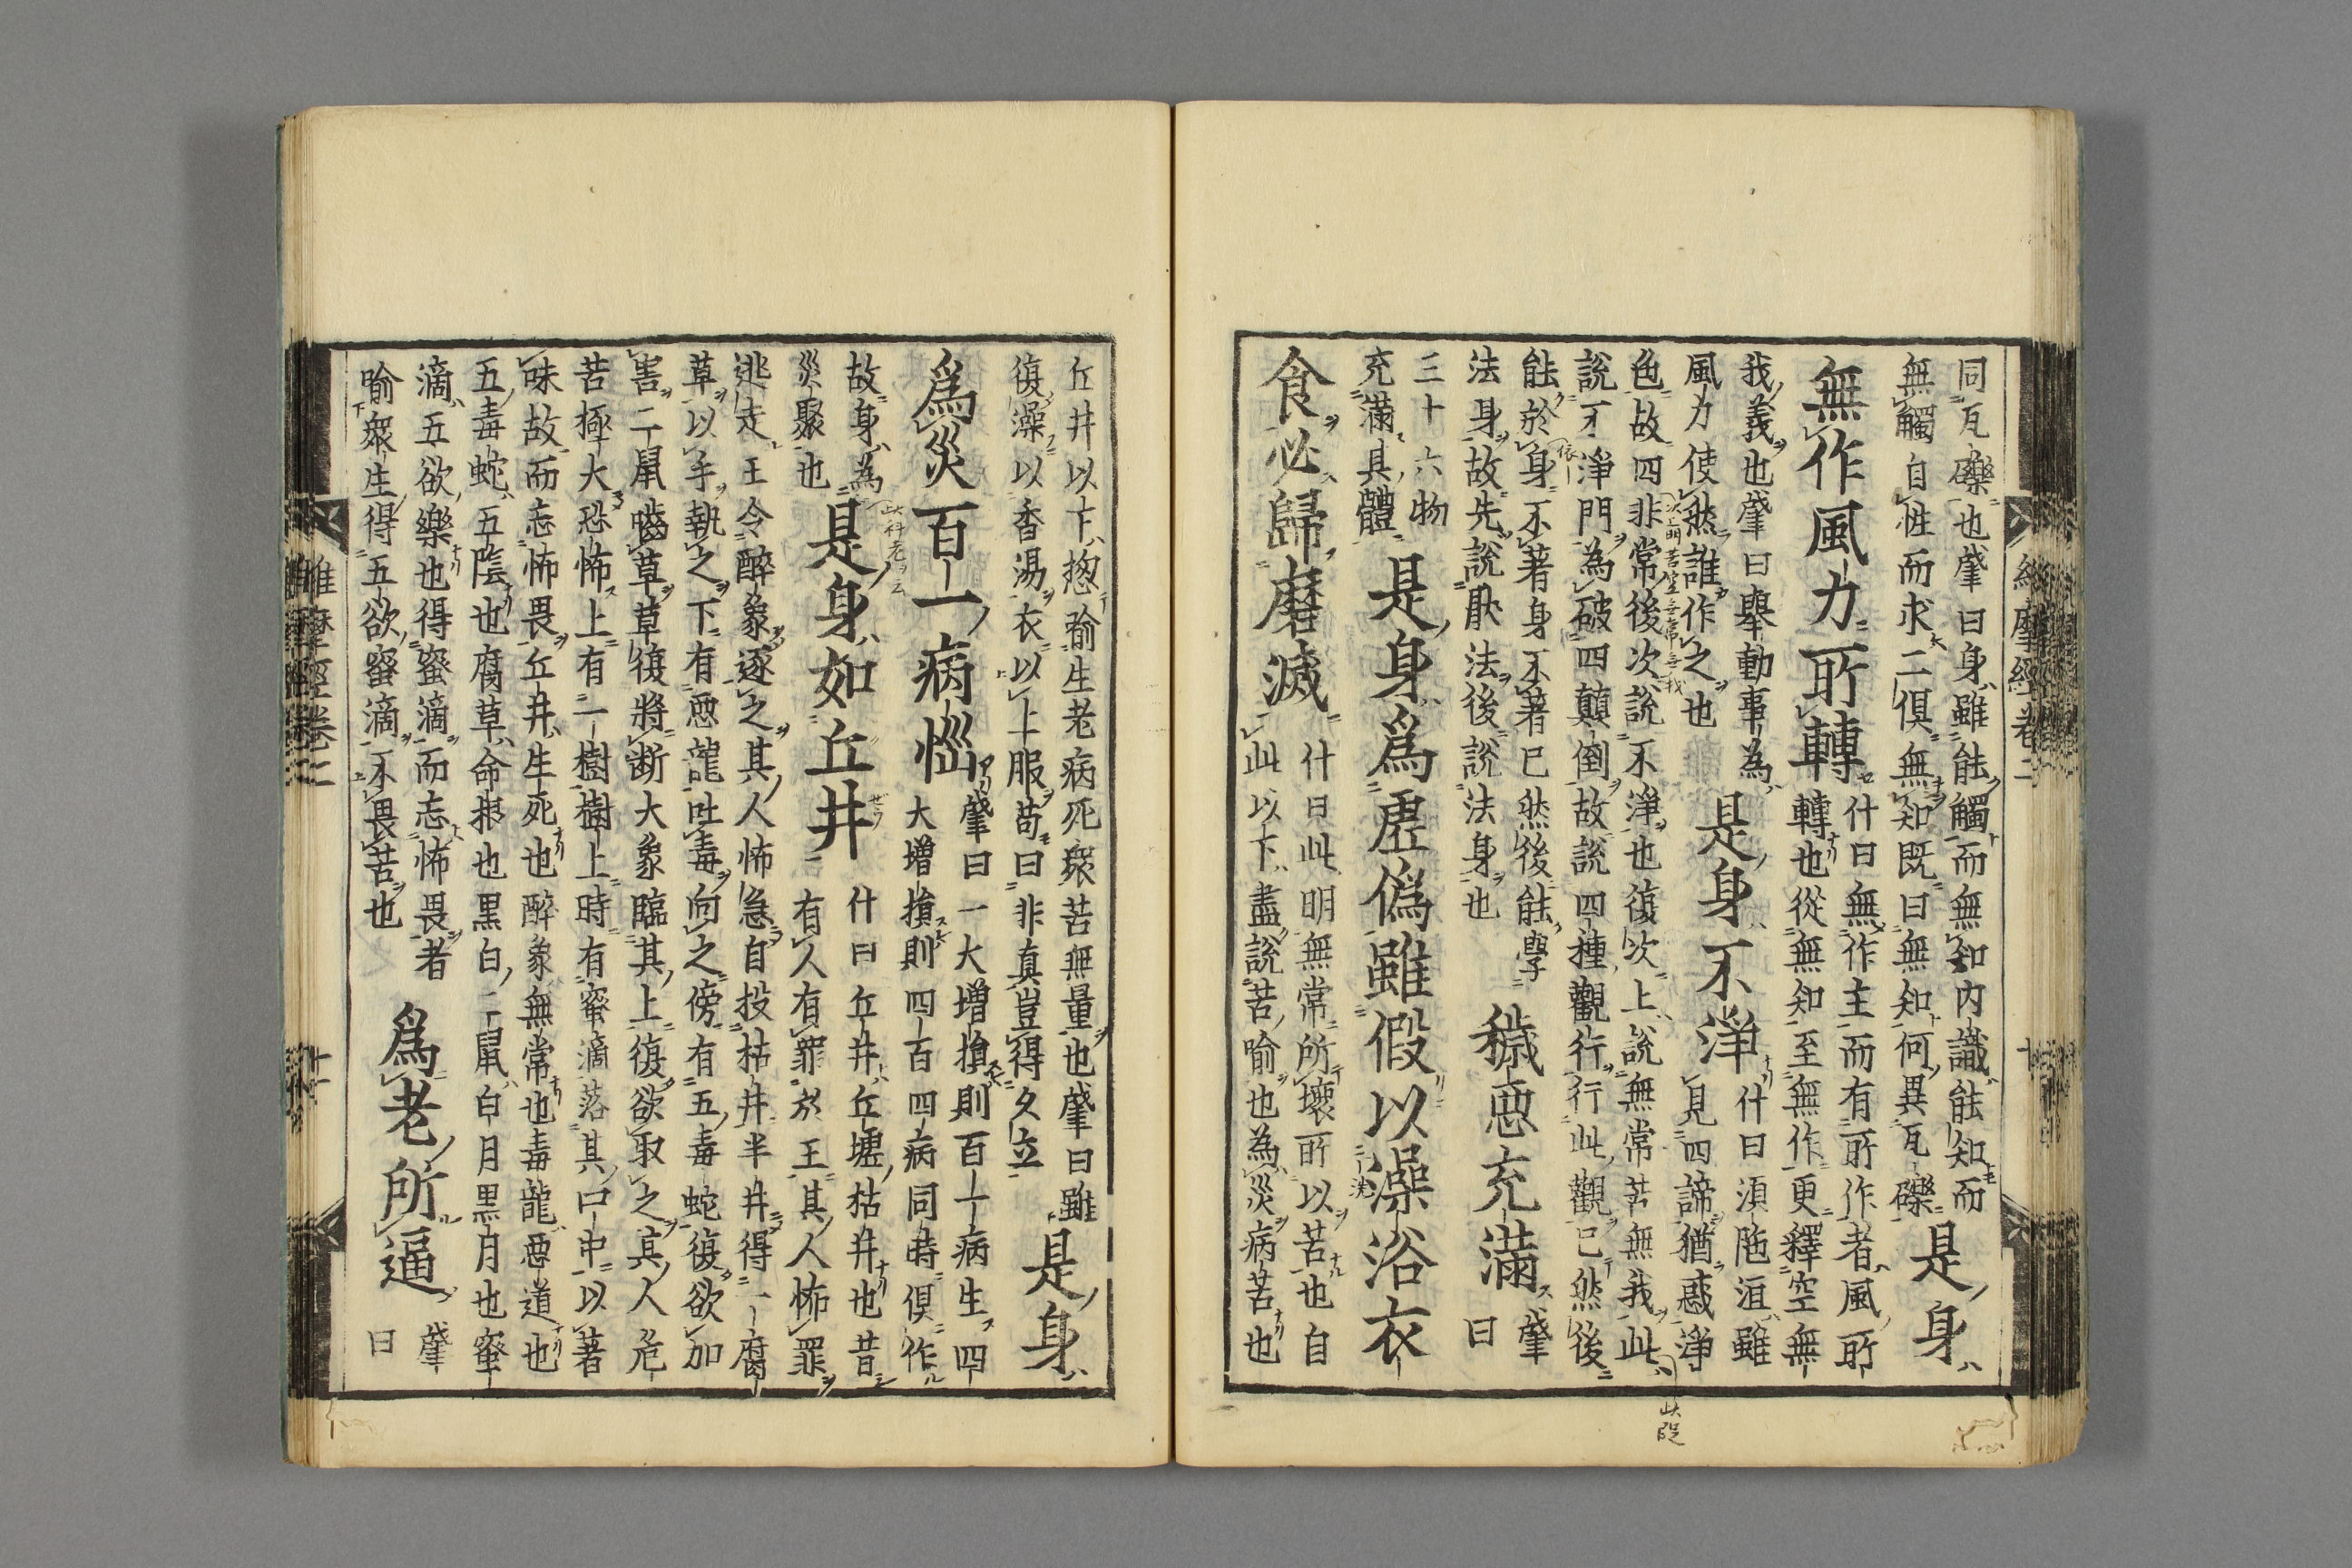 同瓦礫也肇曰身雖能觸而無知内識能知而
無觸自性而求二俱無知既曰無知何異瓦礫
是身
無作風力所轉
什曰無作主而有所作者風所
轉也從無知至無作更釋空無
我義也肇曰擧動事為
風力使然誰作之也
是身不淨
什曰須陁洹雖
見四諦猶惑淨
色故四非常後次說不淨也復次上說無常苦無我此
說不淨門為破四顛倒故說四種觀行行此觀已然後
能於身不著身不著已然後能學
法身故先說猒法後說法身也
穢惡充滿
肇
曰
三十六物
充滿具體
是身爲虛僞雖假以澡浴衣
食必歸磨滅
什曰此明無常所壞所以苦也自
此以下盡說苦喻也為災病苦也
丘井以下揔喻生老病死衆苦無量也肇曰雖
復澡以香湯衣以上服苟曰非真豈得久立
是身
爲災百一病惱
肇曰一大增損則百一病生四
大增損則四百四病同時俱作
故身為
災聚也
是身如丘井
什曰丘井丘墟枯井也昔
有人有罪於王其人怖罪
逃走王令醉象逐之其人怖急自投枯井半井得一腐
草以手執之下有惡龍吐毒向之傍有五毒蛇復欲加
害二鼠嚙草草復將断大象臨其上復欲取之其人危
苦極大恐怖上有一樹樹上時有蜜滴落其口中以著
味故而忘怖畏丘井生死也醉象無常也毒龍惡道也
五毒蛇五陰也腐草命根也黒白二鼠白月黒月也蜜
滴五欲樂也得蜜滴而忘怖畏者
喻衆生得五欲蜜滴不畏苦也
爲老所逼
肇
曰
維摩經卷二
十一